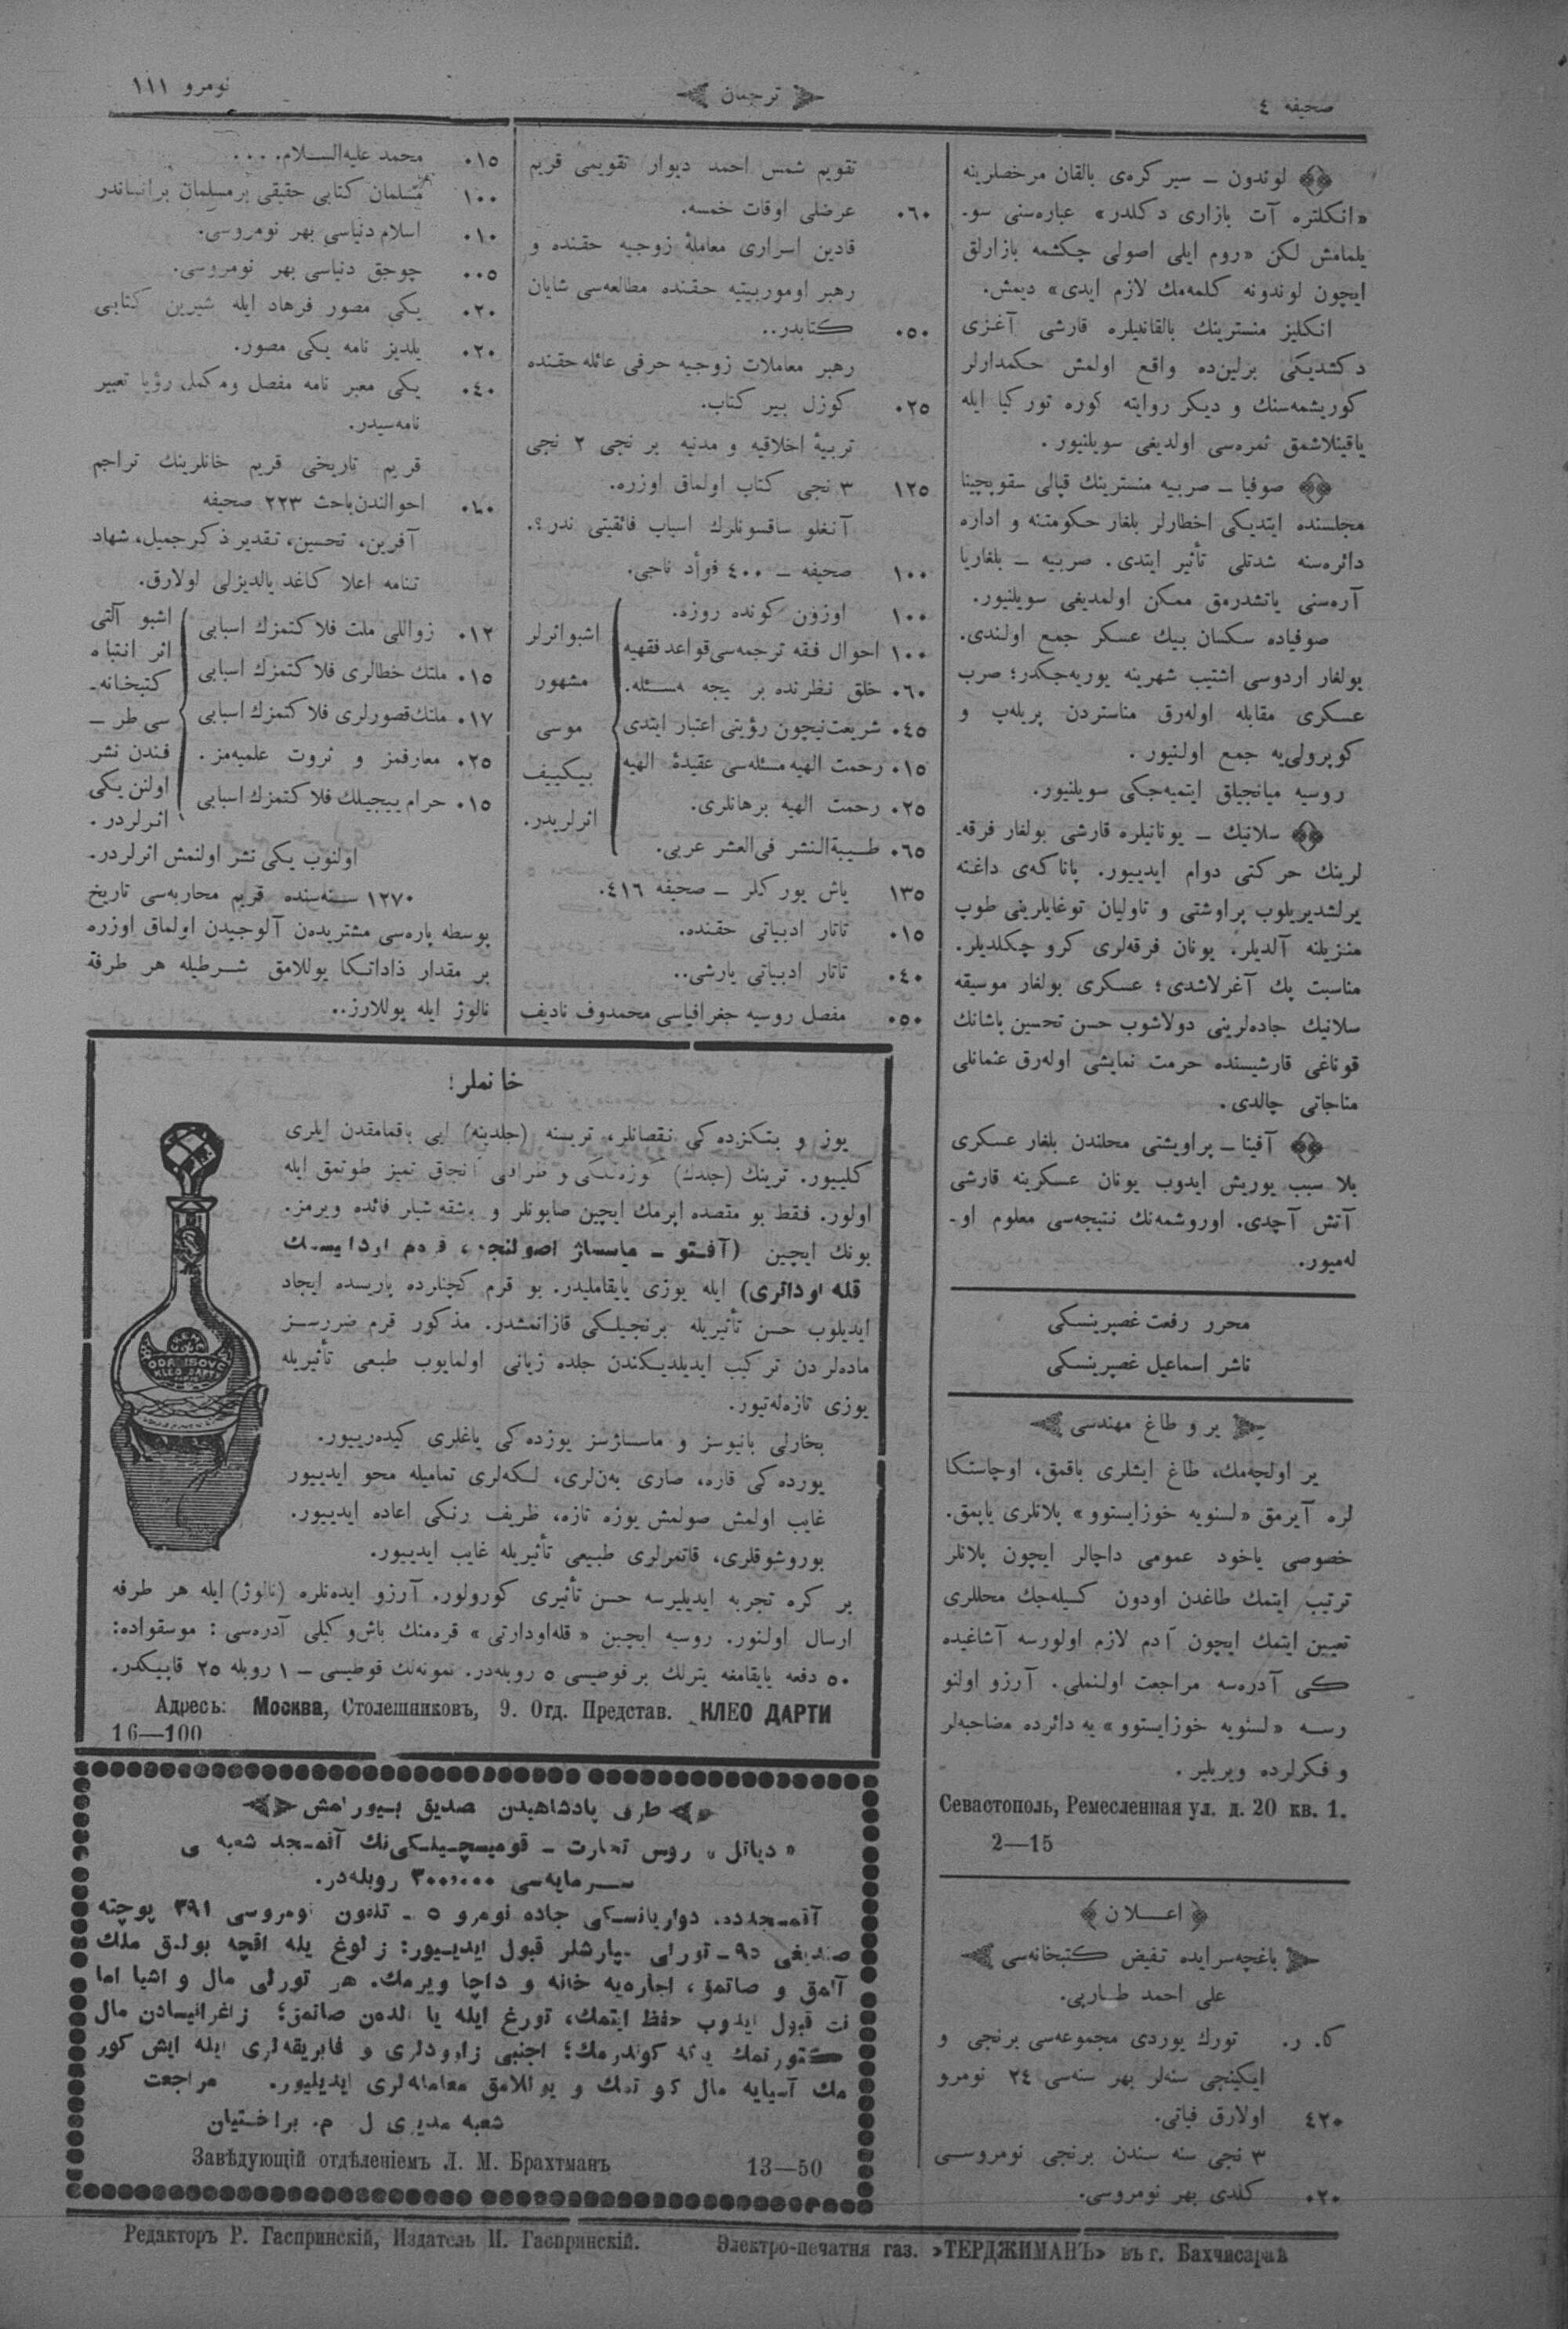 صحیفه ٤
﴿ ترجمان ﴾
نومرو ١١١
لوندون ــ سیر کره‌ی بالقان مرخصلرینه
«انکلتره آت بازاری دکلدر» عباره‌سنی سو-
یلمامش لکن «روم ایلی اصولی چکشمه بازارلق
ایچون لوندونه کلمه‌مك لازم ایدی» دیمش.
انکلیز منسترینك بالقانلیلره قارشی آغزی
دکشدیکی برلین‌ده واقع اولمش حکمدارلر
کوریشمه‌سنك و دیکر روایته کوره تورکیا ایله
یاقینلاشمق ثمره‌سی اولدیغی سویلنیور.
صوفیا ــ صربیه منسترینك قپالی سقوپچینا
مجلسنده ایتدیکی اخطارلر بلغار حکومتنه و اداره
دائره‌سنه شدتلی تأثیر ایتدی. صربیه ــ بلغاریا
آره‌سنی یاتشدرمق ممکن اولمدیغی سویلنیور.
صوفیاده سکسان بیك عسکر جمع اولندی.
بولغار اردوسی اشتیب شهرینه یوریه‌جکدر؛ صرب
عسکری مقابله اوله‌رق مناستردن پریله‌پ و
کوپرولی‌یه جمع اولنیور.
روسیه میانجیلق ایتمیه‌جکی سویلنیور.
سلانیك ــ یونانیلره قارشی بولغار فرقه-
لرینك حرکتی دوام ایدییور. پاناکه‌ی داغنه
یرلشدیریلوب پراوشتی و تاولیان توغایلرینی طوپ
منزیلنه آلدیلر. یونان فرقه‌لری کرو چکلدیلر.
مناسبت پك آغرلاشدی؛ عسکری بولغار موسیقه
سلانیك جاده‌لرینی دولاشوب حسن تحسین پاشانك
قوناغی قارشیسنده حرمت نمایشی اوله‌رق عثمانلی
مناجاتی چالدی.
آفینا ــ پراویشتی محلندن بلغار عسکری
بلا سبب یوریش ایدوب یونان عسکرینه قارشی
آتش آچدی. اوروشمه‌نك نتیجه‌سی معلوم او-
له‌میور.
محرر رفعت غصپرینسکی
ناشر اسماعیل غصپرینسکی
یر و طاغ مهندسی
یر اولچه‌مك، طاغ ایشلری باقمق، اوچاستکا
لره آیرمق «لسنویه خوزایستوو» پلانلری یاپمق.
خصوصی یاخود عمومی داچالر ایچون پلانلر
ترتیب ایتمك طاغدن اودون کسیله‌جك محللری
تعیین ایتمك ایچون آدم لازم اولورسه آشاغیده
کی آدره‌سه مراجعت اولنملی. آرزو اولنو
رسه «لسنویه خوزایستوو» یه دائرده مضاحبه‌لر
و فکرلرده ویریلیر.
Севастополь, Ремесленная ул. д. 20 кв. 1.
2—15
﴿ اعلان ﴾
باغچه‌سرایده تفیض کتبخانه‌سی
علی احمد طارپی.
کا. ر. تورك یوردی مجموعه‌سی برنجی و
ایکینجی سنه‌لر بهر سنه‌سی ٢٤ نومرو
٤٢٠ اولارق فیاتی.
٣ نجی سنه سندن برنجی نومروسی
٠٢٠ کلدی بهر نومروسی.
تقویم شمس احمد دیوار تقویمی قریم
٠٦٠ عرضلی اوقات خمسه.
قادین اسراری معاملهٔ زوجیه حقنده و
رهبر اوموربیتیه حقنده مطالعه‌سی شایان
٠٥٠ کتابدر..
رهبر معاملات زوجیه حرفی عائله حقنده
٠٢٥ کوزل بیر کتاب.
تربیهٔ اخلاقیه و مدنیه بر نجی ٢ نجی
١٢٥ ٣ نجی کتاب اولماق اوزره.
آنغلو ساقسونلرك اسباب فائقیتی ندر؟.
١٠٠ صحیفه ــ ٤٠٠ فوأد ناجی.
١٠٠ اوزون کونده روزه.
١٠٠ احوال فقه ترجمه‌سی قواعد فقهیه
٠٦٠ خلق نظرنده بر نیجه مسئله.
٠٤٥ شریعت نیچون رؤیتی اعتبار ایتدی
٠١٥ رحمت الهیه مسئله‌سی عقیدهٔ الهیه
٠٢٥ رحمت الهیه برهانلری.
٠٦٥ طیبة‌النشر فی‌العشر عربی.
اشبو اثرلر
مشهور
موسی
بیکییف
اثرلریدر.
١٣٥ یاش یورکلر ــ صحیفه ٤١٦.
٠١٥ تاتار ادبیاتی حقنده.
٠٤٠ تاتار ادبیاتی یارشی..
٠٥٠ مفصل روسیه جغرافیاسی محمدوف نادیف
٠١٥ محمد علیه‌السلام....
١٠٠ مسلمان کتابی حقیقی بر مسلمان بر انساندر
٠١٠ اسلام دنیاسی بهر نومروسی.
٠٠٥ چوجق دنیاسی بهر نومروسی.
٠٢٠ یکی مصور فرهاد ایله شیرین کتابی
٠٢٠ یلدیز نامه یکی مصور.
٠٤٠ یکی معبر نامه مفصل و مکمل رؤیا تعبیر
نامه‌سیدر.
قریم تاریخی قریم خانلرینك تراجم
احوالندن باحث ٢٢٣ صحیفه
آفرین، تحسین، تقدیر ذکر جمیل، شهاد
تنامه اعلا کاغد یالدیزلی اولارق.
٠١٢ زواللی ملت فلاکتمزك اسبابی
٠١٥ ملتك خطالری فلاکتمزك اسبابی
٠١٧ ملتك قصورلری فلاکتمزك اسبابی
٠٢٥ معارفمز و ثروت علمیه‌مز.
٠١٥ حرام ییجیلك فلاکتمزك اسبابی
اشبو آلتی
اثر انتباه
کتبخانه-
سی طر ــ
فندن نشر
اولنن یکی
اثرلردر.
اولنوب یکی نشر اولنمش اثرلردر.
١٢٧٠ سنه‌سنده قریم محاربه‌سی تاریخ
پوسطه پاره‌سی مشتریدەن آلوجیدن اولماق اوزره
بر مقدار ذاداتکا یوللامق شرطیله هر طرفة
نالوژ ایله یوللارز..
خانملر!
یوز و بتکزده‌کی نقصانلر، تریسنه (جلدینه) ایی باقمامقدن ایلری
کلییور. ترینك (جلدك) کوزه‌للکی و طرافتی آنجاق تمیز طوتمق ایله
اولور. فقط بو مقصده ایرمك ایچین صابونلر و باشقه شیلر فائده ویرمز.
بونك ایچین (آفتو ــ ماسساژ اصولنجه،
قله اوداثری) ایله یوزی یایقاملیدر. بو قرم کچنلرده پاریسده ایجاد
ایدیلوب حسن تأثیریله برنجیلکی قازانمشدر. مذکور قرم ضررسز
ماده‌لردن ترکیب ایدیلدیکندن جلده زیانی اولمایوب طبعی تأثیریله
یوزی تازه‌له‌تیور.
بخارلی بانیوسز و ماسساژسز یوزده‌کی یاغلری کیده‌رییور.
یورده‌کی قاره، صاری بەن‌لری، لکه‌لری تمامیله محو ایدییور
غایب اولمش صولمش یوزه تازه، ظریف رنکی اعاده ایدییور.
بوروشوقلری، قاتمرلری طبیعی تأثیریله غایب ایدییور.
بر کره تجربه ایدیلیرسه حسن تأثیری کورولور. آرزو ایده‌نلره (نالوژ) ایله هر طرفه
ارسال اولنور. روسیه ایچین «قله‌اودارتی» قره‌منك باش‌وکیلی آدره‌سی: موسقواده:
٥٠ دفعه یایقامغه یترلك بر قوطیسی ٥ روبله‌در. نمونه‌لك قوطیسی ــ ١ روبله ٢٥ قاپیکدر.
Адресъ: Москва, Столешниковъ, 9. Отд. Представ. КЛЕО ДАРТИ
16—100
طرف پادشاهیدن تصدیق بیورلمش
«دیاتل» روس تجارت ــ قومیسچیلکی‌نك آقمسجد شعبه‌ی
سرمایه‌سی ٣٠٠,٠٠٠ روبله‌در.
آقمسجدده. دواریانسکی جاده نومرو ٥ ــ تلفون نومروسی ٣٩١ پوچته
صندیغی ٥٩ــ تورلی سپارشلر قبول ایدییور: زلوغ یله اقچه بولمق ملك
آلمق و صاتمق، اجاره‌یه خانه و داچا ویرمك. هر تورلی مال و اشیا اما
نت قبول ایدوب حفظ ایتمك، تورغ ایله یا الدەن صاتمق؛ زاغرانیسادن مال
کتورتمك یاکه کوندرمك؛ اجنبی زاوودلری و فابریقه‌لری ایله ایش کور
مك آسیایه مال کوتمك و یوللامق معامله‌لری ایدیلیور. مراجعت
شعبه مدیری ل. م. براختیان
Завѣдующій отдѣленіемъ Л. М. Брахтманъ
13—50
Редакторъ Р. Гаспринскій, Издатель И. Гаспринскій.
Электро-печатня газ. «ТЕРДЖИМАНЪ» въ г. Бахчисараѣ